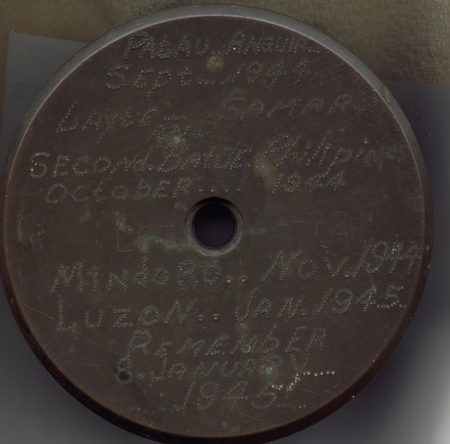 PALAU.. ANGUIR..
SEPT....1944
LAYTE — SAMAR
SECOND.BATLE.PhilipiNE
OCTOBER.... 1944
MINDORO.. NOV.1944
LUZON.. JAN.1945.
REMEMBER
6.JANUARY
1945